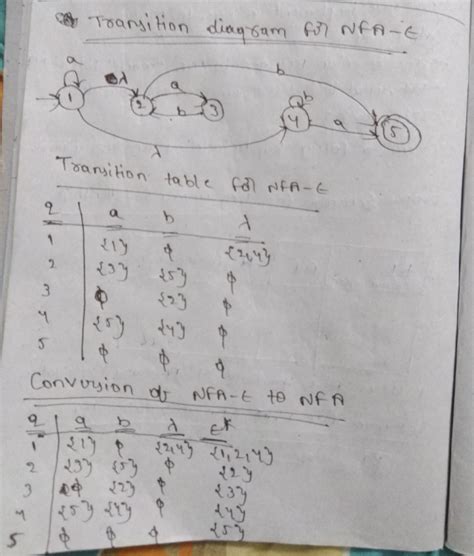 Transition diagram for NFA-ε
a
λ
a
b
b
b
a
λ
1
2
3
4
5
Transition table for NFA-ε
q a b λ
1 {1} ϕ {2,4}
2 {3} {5} ϕ
3 ϕ {2} ϕ
4 {5} {4} ϕ
5 ϕ ϕ ϕ
Conversion of NFA-ε to NFA
q a b λ ε*
1 {1} ϕ {2,4} {1,2,4}
2 {3} {5} ϕ {2}
3 ϕ {2} ϕ {3}
4 {5} {4} ϕ {4}
5 ϕ ϕ ϕ {5}